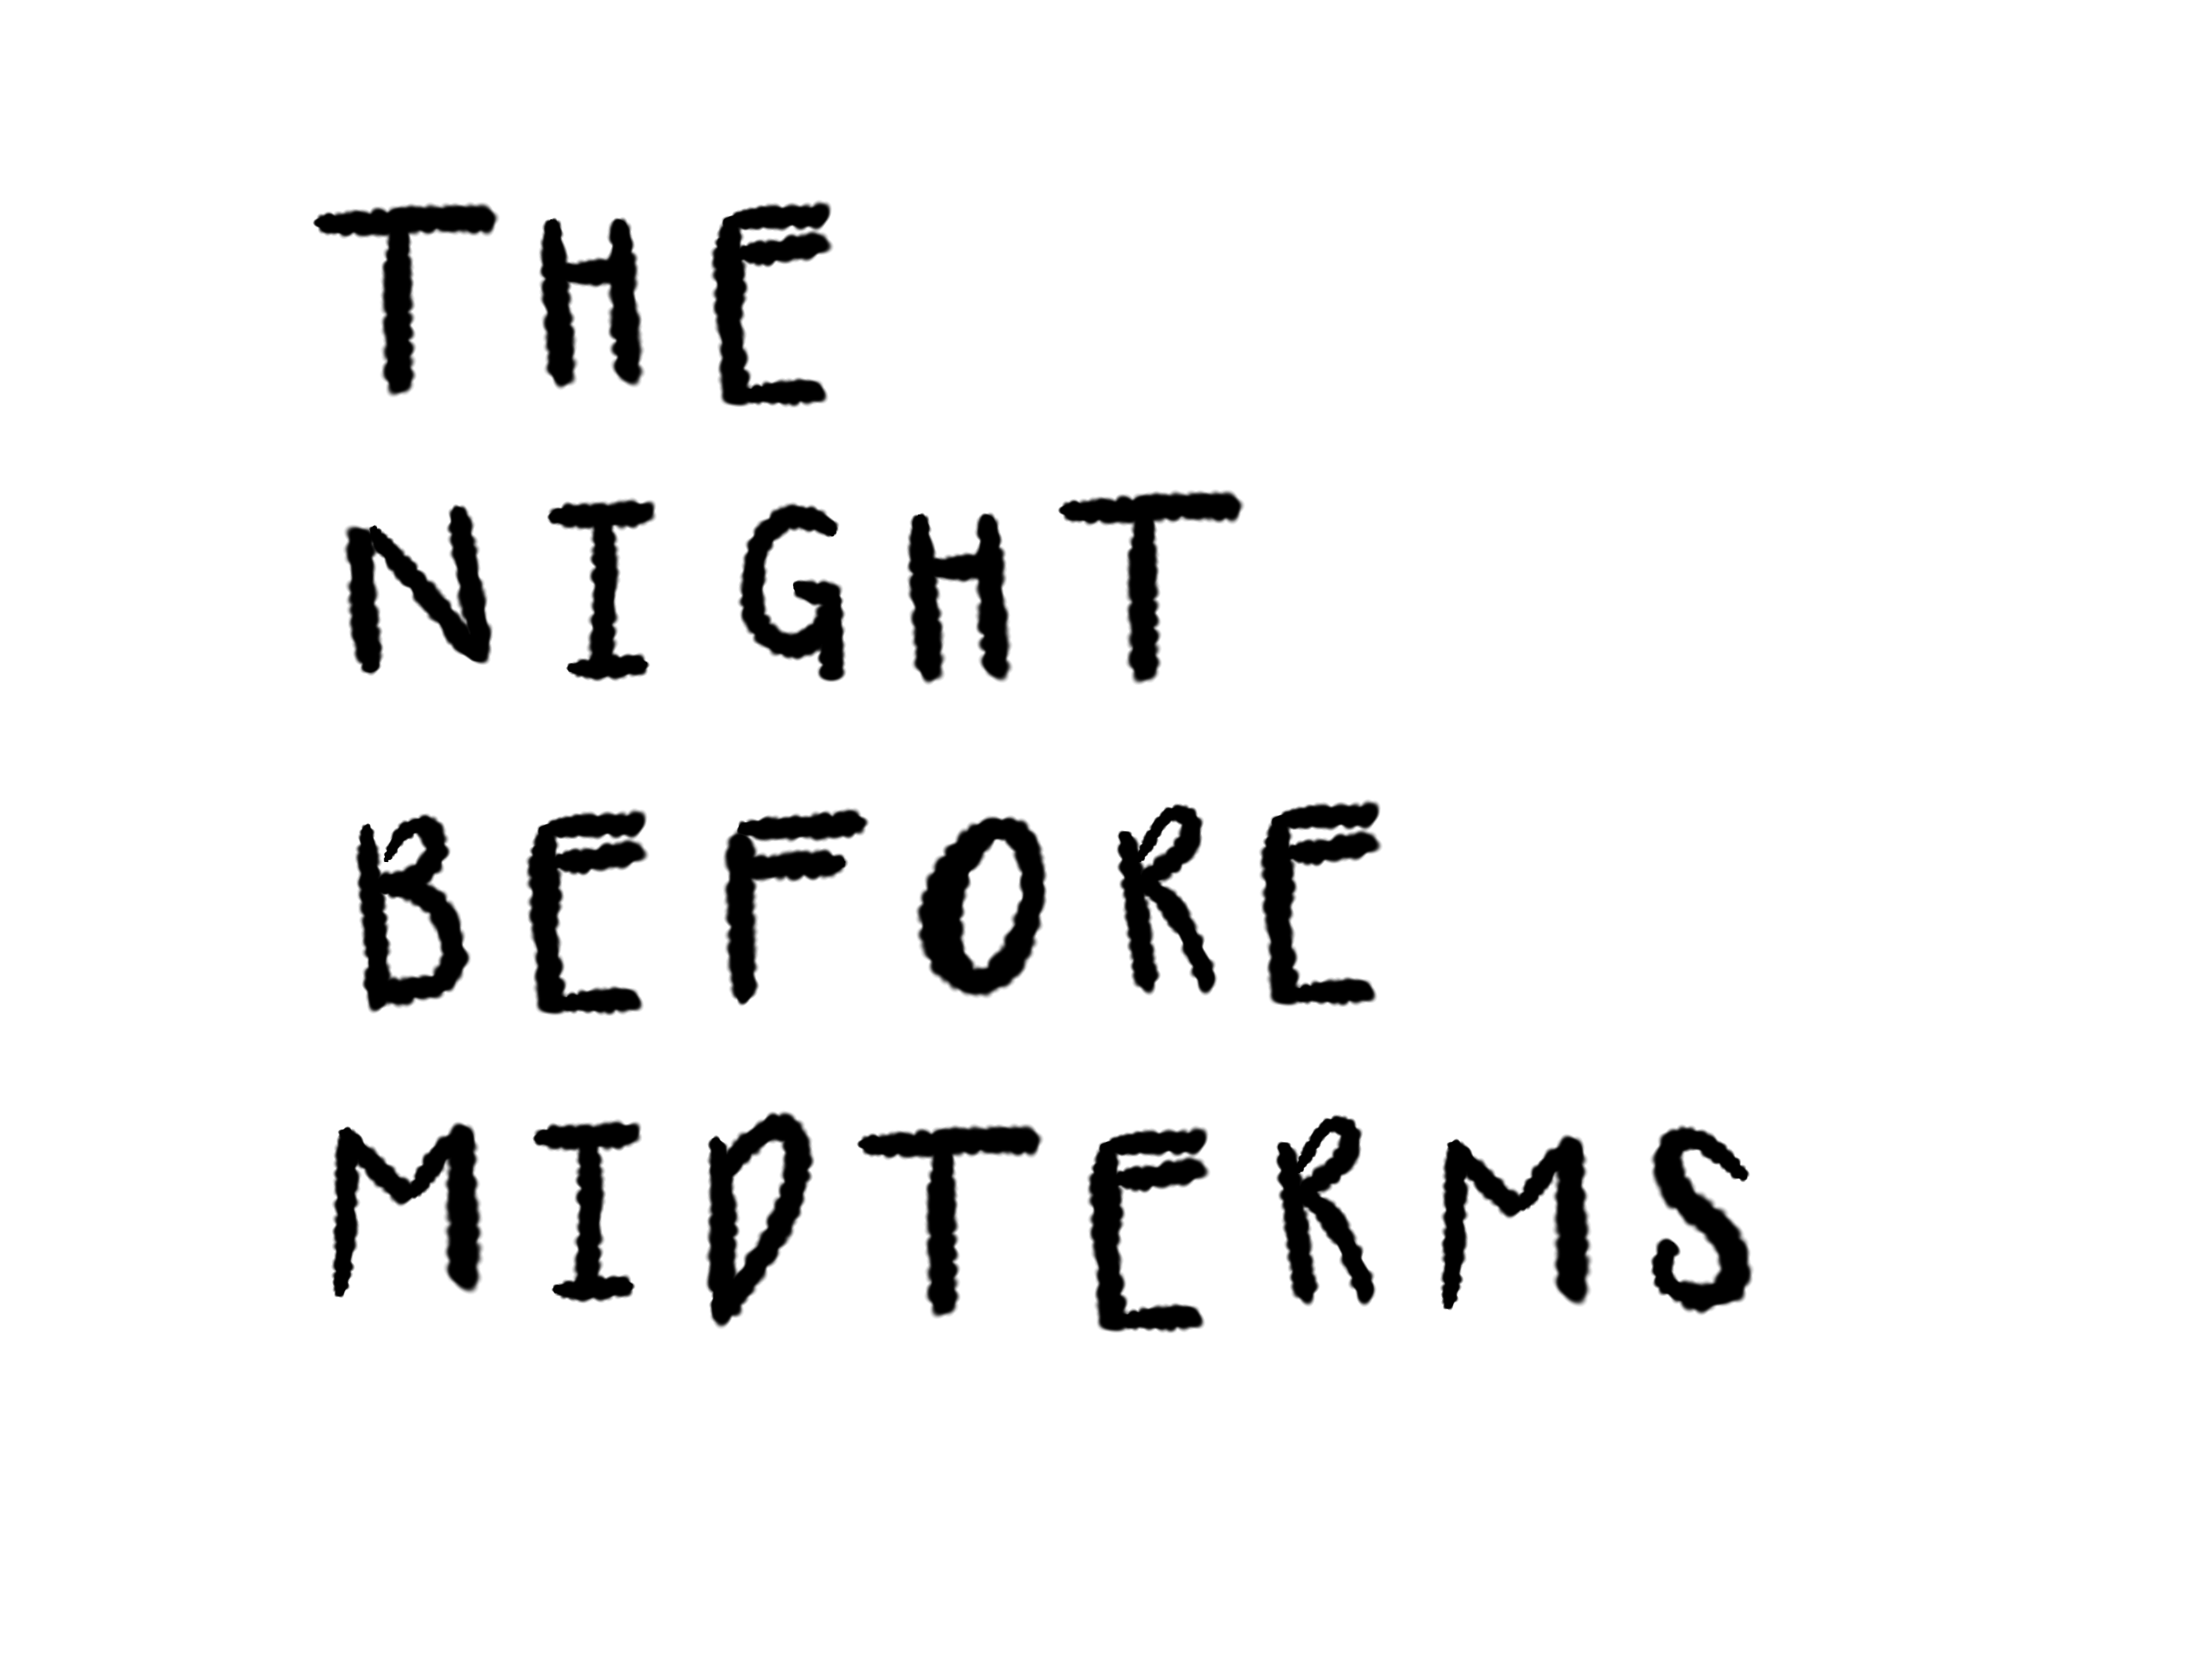 THE
NIGHT
BEFORE
MIDTERMS